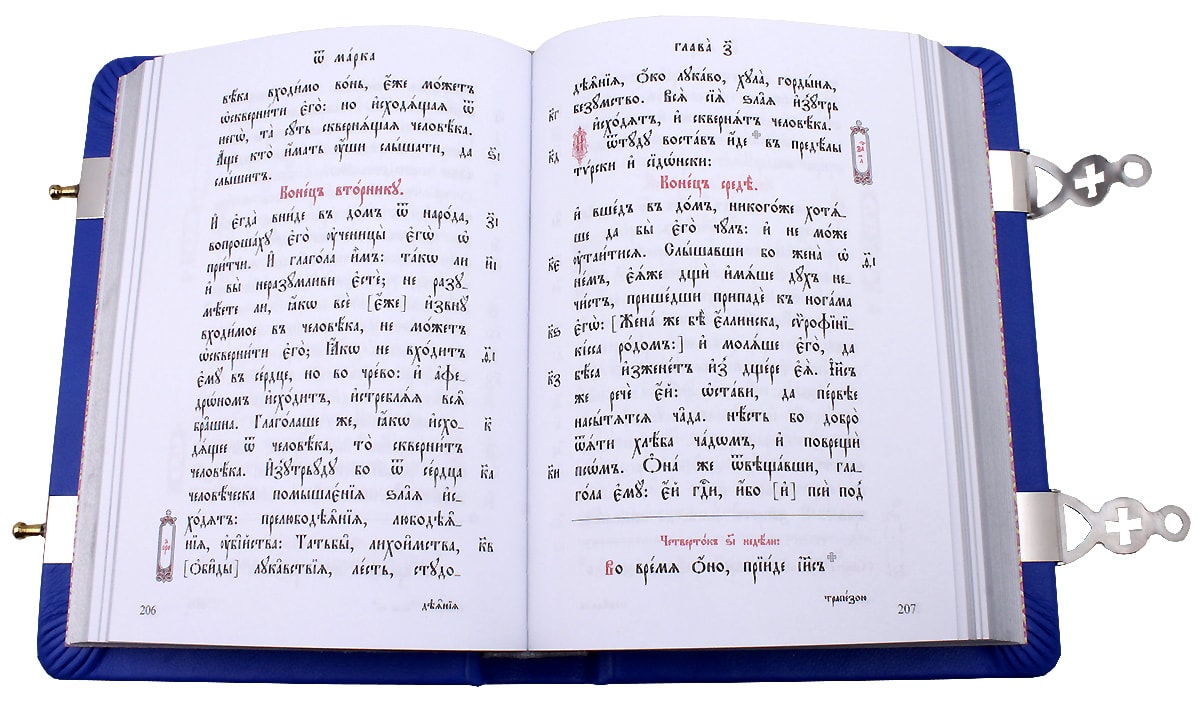 Ѿ ма́рка
вѣка входи́мо во́нь, є҆́же мо́жетъ
ѡ҆скверни́ти є҆го̀: но и҆сходѧ́щаѧ ѿ
негѡ̀, та̑ сꙋ́ть сквернѧ́щаѧ человѣ́ка.
А҆́ще кто̀ и҆́мать ᲂу҆́ши слы́шати, да
ѕ҃і
слы́шитъ.
Коне́цъ вто́рникꙋ.
И҆ є҆гда̀ вни́де въ до́мъ ѿ наро́да,
з҃і
вопроша́хꙋ є҆го̀ ᲂу҆чн҃цы̀ є҆гѡ̀ ѡ҆
при́тчи. И҆ глаго́ла и҆̀мъ: та́кѡ ли
и҃і
и҆ вы̀ неразꙋ́мливи є҆стѐ; не разꙋ-
мѣ́ете ли, ꙗ҆́кѡ всѐ [є҆́же] и҆звнꙋ̀
входи́мое въ человѣ́ка, не мо́жетъ
ѡ҆скверни́ти є҆го̀; Ꙗ҆́кѡ не вхо́дитъ
ѳ҃і
є҆мꙋ̀ въ се́рдце, но во чре́во: и҆ а҆фе-
дрѡ́номъ и҆схо́дитъ, и҆стреблѧ́ѧ всѧ̑
бра̑шна. Глаго́лаше же, ꙗ҆́кѡ и҆схо-
к҃
дѧ́щее ѿ человѣ́ка, то̀ скверни́тъ
человѣ́ка. И҆зꙋтрьꙋ́дꙋ бо ѿ се́рдца
к҃а
человѣ́ческа помышлє́нїѧ ѕла̑ѧ и҆с-
хо́дѧтъ: прелюбодѣѧ̑нїѧ, любодѣѧ̑-
нїѧ, ᲂу҆бі̑йства: Татьбы̑, лихои̑мства,
к҃в
[ѻ҆би̑ды] лꙋка̑вствїѧ, ле́сть, стꙋдо-
дѣѧ̑нїѧ
206
глава̀ з҃
дѣѧ̑нїѧ, ѻ҆́ко лꙋка́во, хꙋла̀, горды́нѧ,
безꙋ́мство. Всѧ̑ сїѧ̑ ѕла̑ѧ и҆зꙋ́трь
к҃г
и҆схо́дѧтъ, и҆ сквернѧ́тъ человѣ́ка.
И҆ ѿтꙋ́дꙋ воста́въ и҆́де въ предѣ́лы
к҃д
тѵ́рски и҆ сїдѡ́нски:
Коне́цъ средѣ̀.
и҆ вше́дъ въ до́мъ, никого́же хотѧ́-
ше да бы̀ є҆го̀ чꙋ́лъ: и҆ не мо́же
ᲂу҆таи́тисѧ. Слы́шавши бо жена̀ ѡ҆
к҃є
не́мъ, є҆ѧ́же дщѝ и҆мѧ́ше дꙋ́хъ не-
чи́стъ, прише́дши припадѐ къ нога́ма
є҆гѡ̀: [Жена́ же бѣ̀ є҆́ллинска, сѵрофїні-
к҃ѕ
кі́сса ро́домъ:] и҆ молѧ́ше є҆го̀, да
бѣ́са и҆зжене́тъ и҆з̾ дще́ре є҆ѧ̀. І҆и҃съ
к҃з
же речѐ є҆́й: ѡ҆ста́ви, да пе́рвѣе
насы́тѧтсѧ ча̑да. нѣ́сть бо добро̀
ѿѧ́ти хлѣ́ба ча́дѡмъ, и҆ поврещѝ
псѡ́мъ. Ѻ҆на́ же ѿвѣща́вши, гла-
к҃и
го́ла є҆мꙋ̀: є҆́й гдⷭ҇и, и҆́бо [и҆] псѝ под̾
Четверто́къ ѕ҃і недѣ́ли:
Во вре́мѧ ѻ҆́но, прїи́де і҆и҃съ
трапе́зою
207